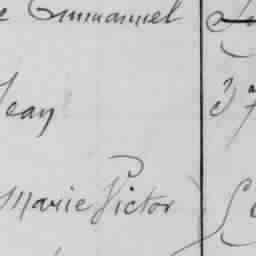 Emmanuel
Jean
Marie Victor